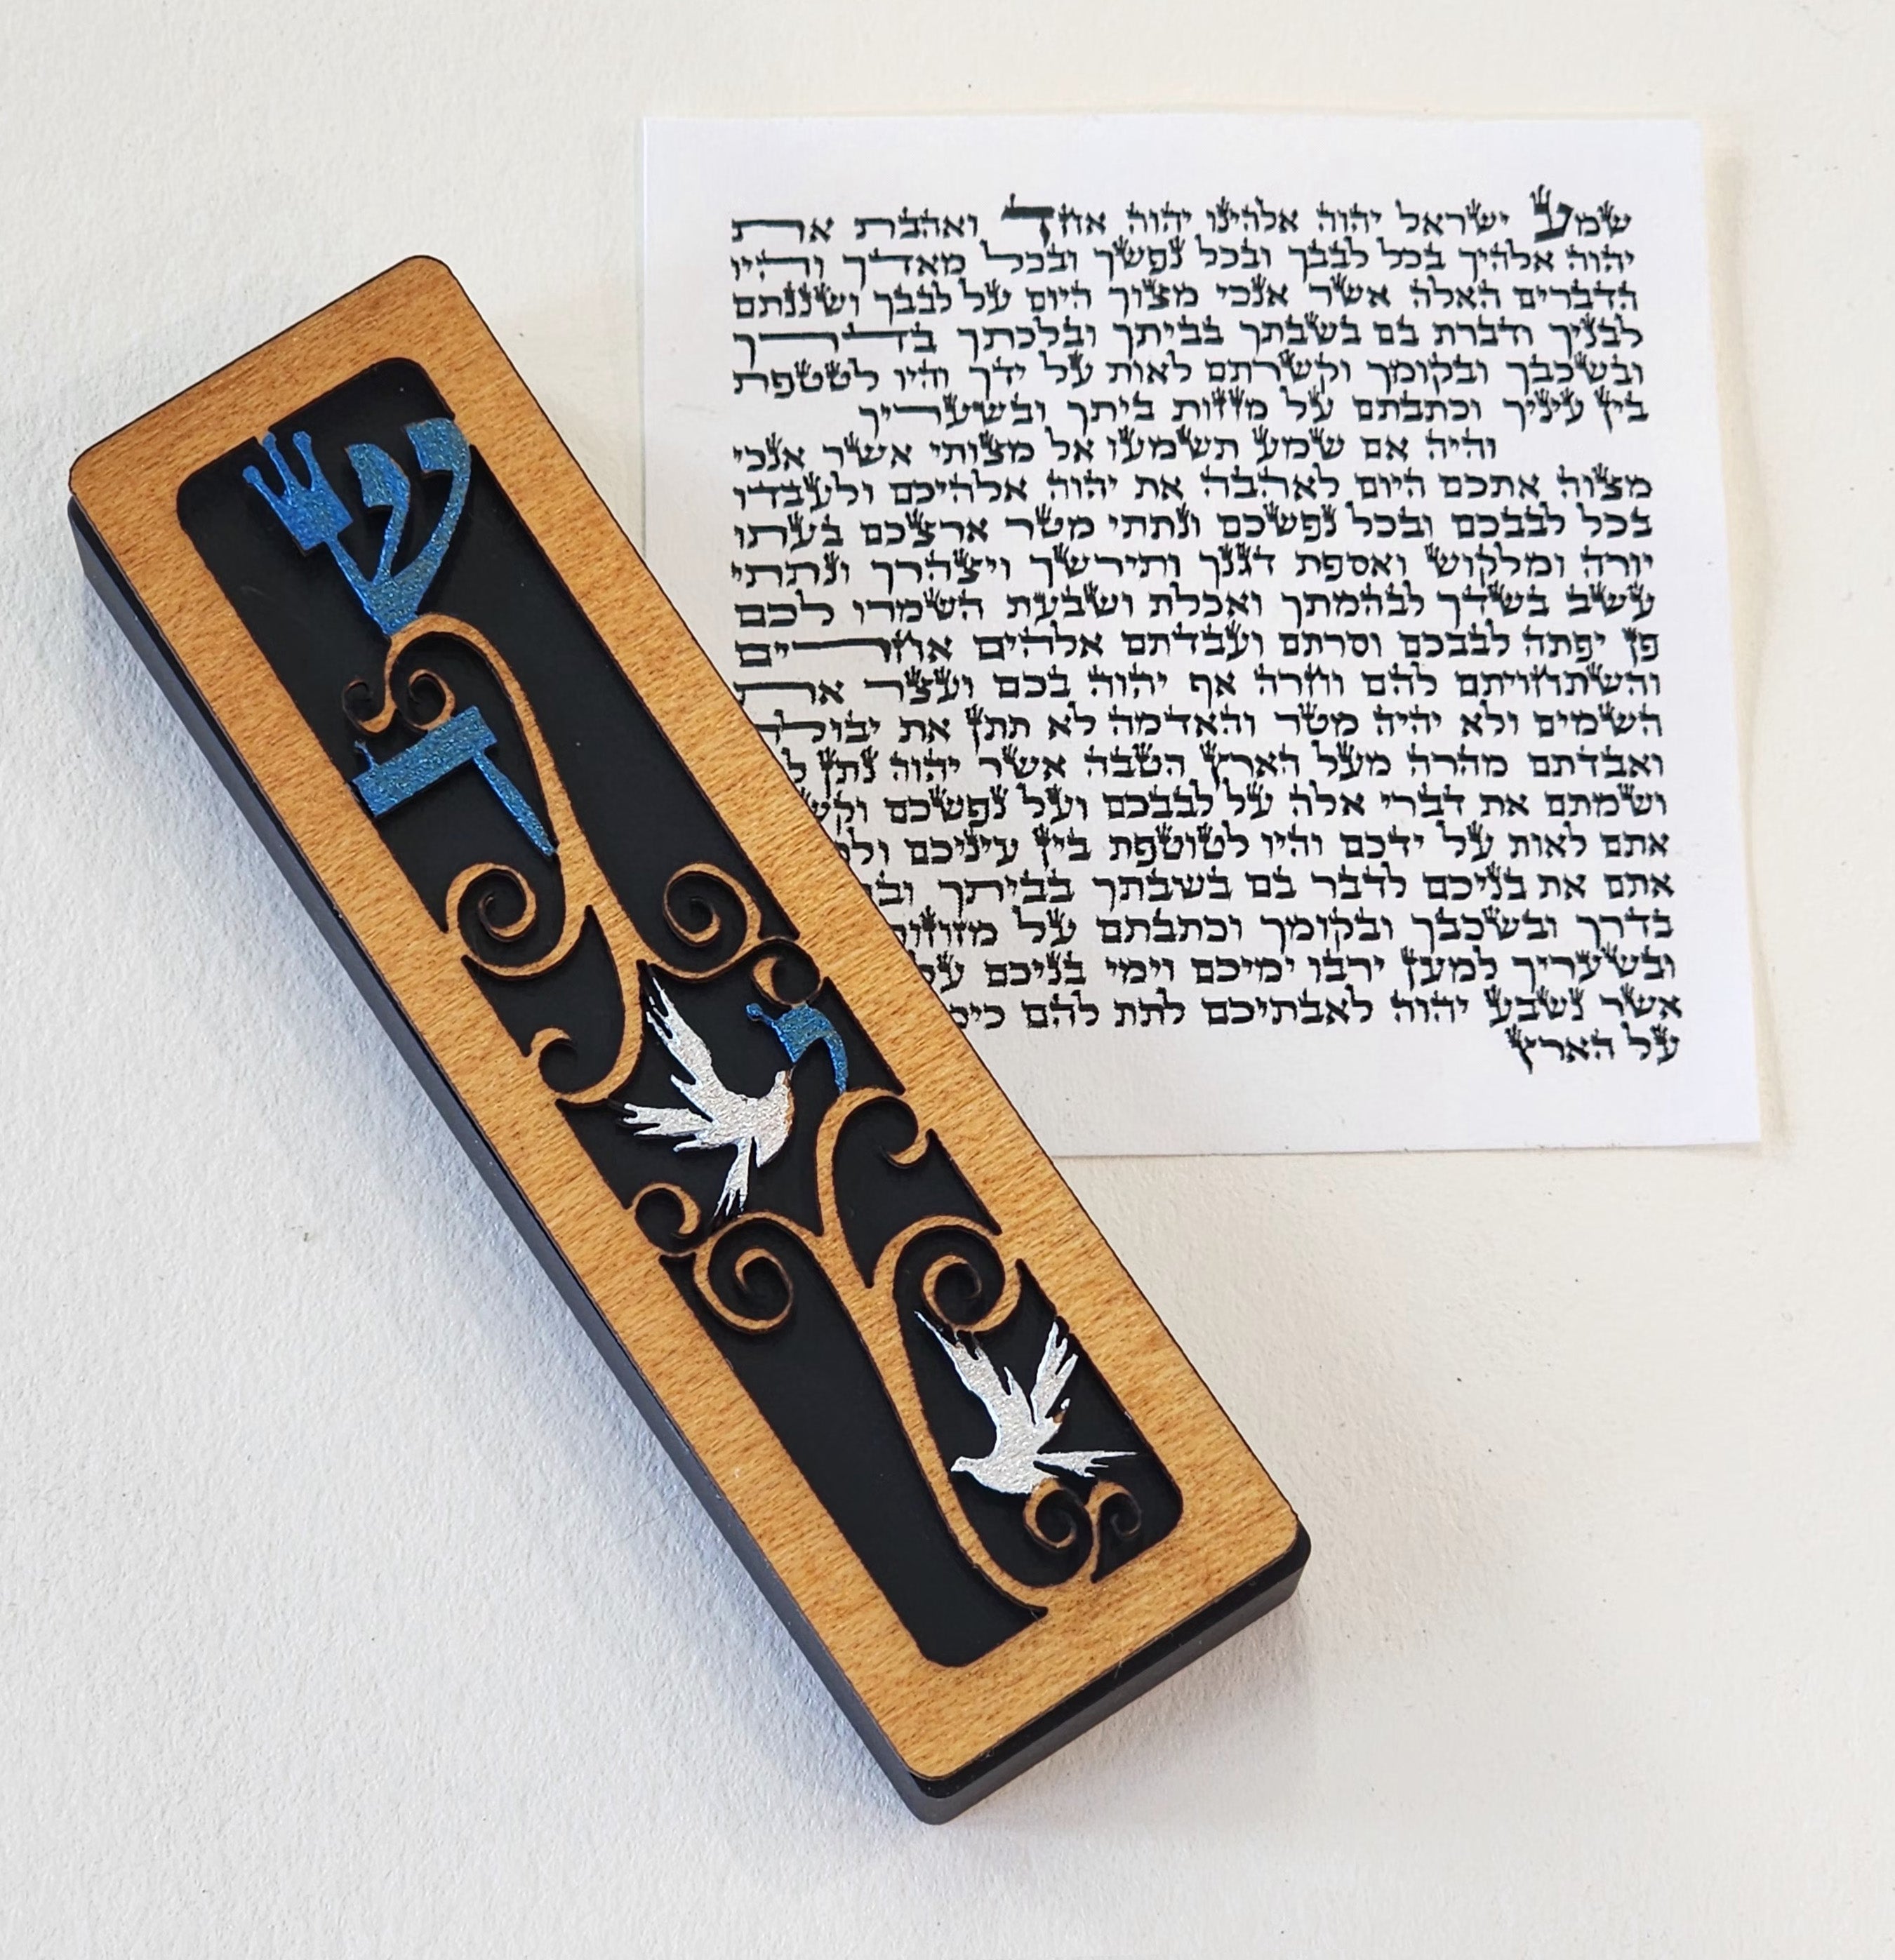 ש
ד
י
שמע ישראל יהוה אלהינו יהוה אחד ואהבת את
יהוה אלהיך בכל לבבך ובכל נפשך ובכל מאדך והיו
הדברים האלה אשר אנכי מצוך היום על לבבך ושננתם
לבניך ודברת בם בשבתך בביתך ובלכתך בדרך
ובשכבך ובקומך וקשרתם לאות על ידך והיו לטטפת
בין עיניך וכתבתם על מזזות ביתך ובשעריך
והיה אם שמע תשמעו אל מצותי אשר אנכי
מצוה אתכם היום לאהבה את יהוה אלהיכם ולעבדו
בכל לבבכם ובכל נפשכם ונתתי מטר ארצכם בעתו
יורה ומלקוש ואספת דגנך ותירשך ויצהרך ונתתי
עשב בשדך לבהמתך ואכלת ושבעת השמרו לכם
פן יפתה לבבכם וסרתם ועבדתם אלהים אחרים
והשתחויתם להם וחרה אף יהוה בכם ועצר את
השמים ולא יהיה מטר והאדמה לא תתן את יבולה
ואבדתם מהרה מעל הארץ הטבה אשר יהוה נתן
ושמתם את דברי אלה על לבבכם ועל נפשכם
אתם לאות על ידכם והיו לטוטפת בין עיניכם
אתם את בניכם לדבר בם בשבתך בביתך
בדרך ובשכבך ובקומך וכתבתם על מזוזות
ובשעריך למען ירבו ימיכם וימי בניכם על
אשר נשבע יהוה לאבתיכם לתת להם
על הארץ